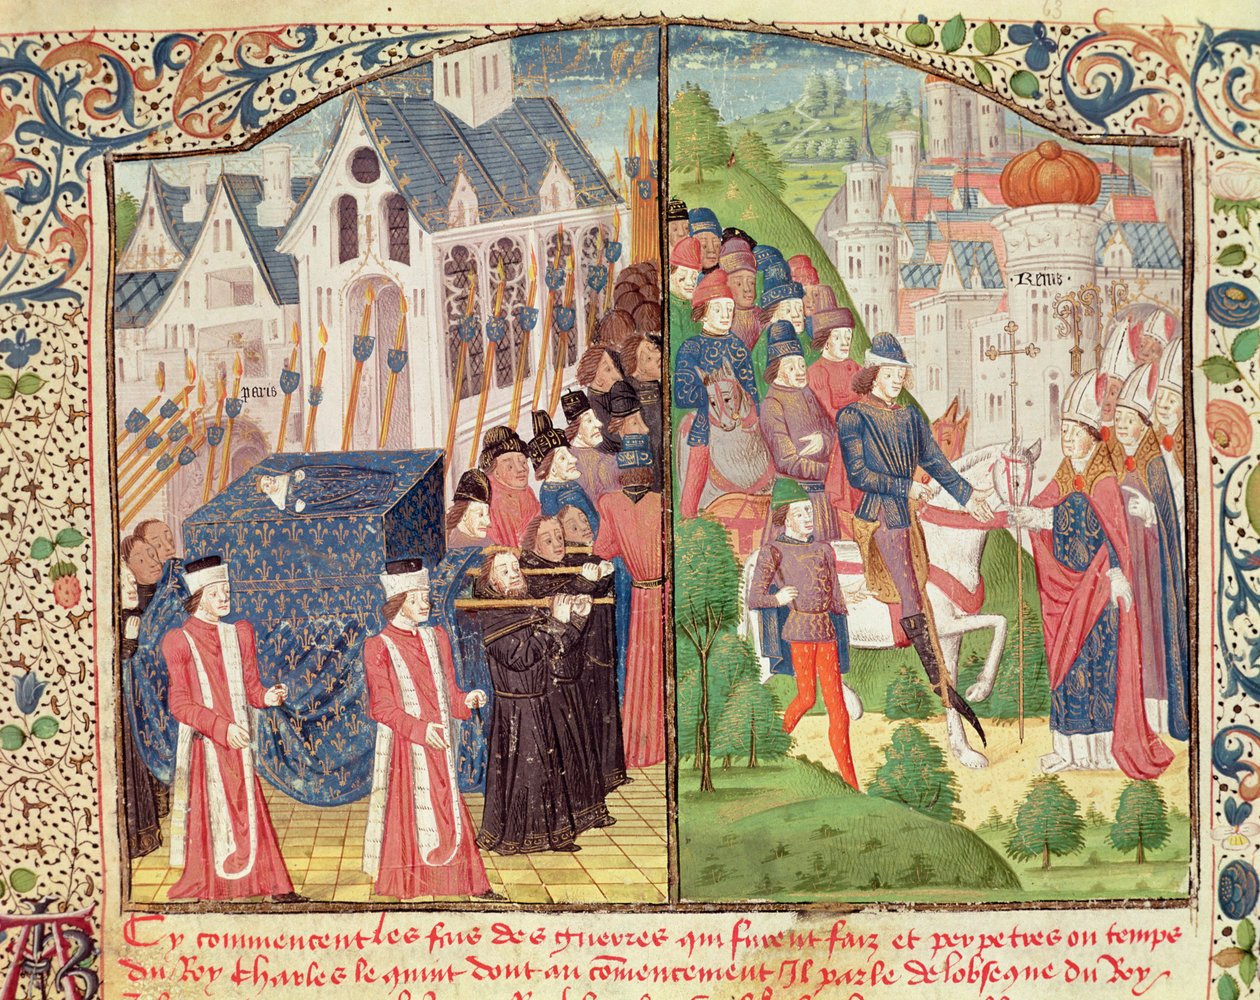 63
paris
Reins
Cy commencent les fais des guerres qui furent faiz et perpetres ou temps
du Roy Charles le quint dont au cōmencement Il parle de lobseque du Roy